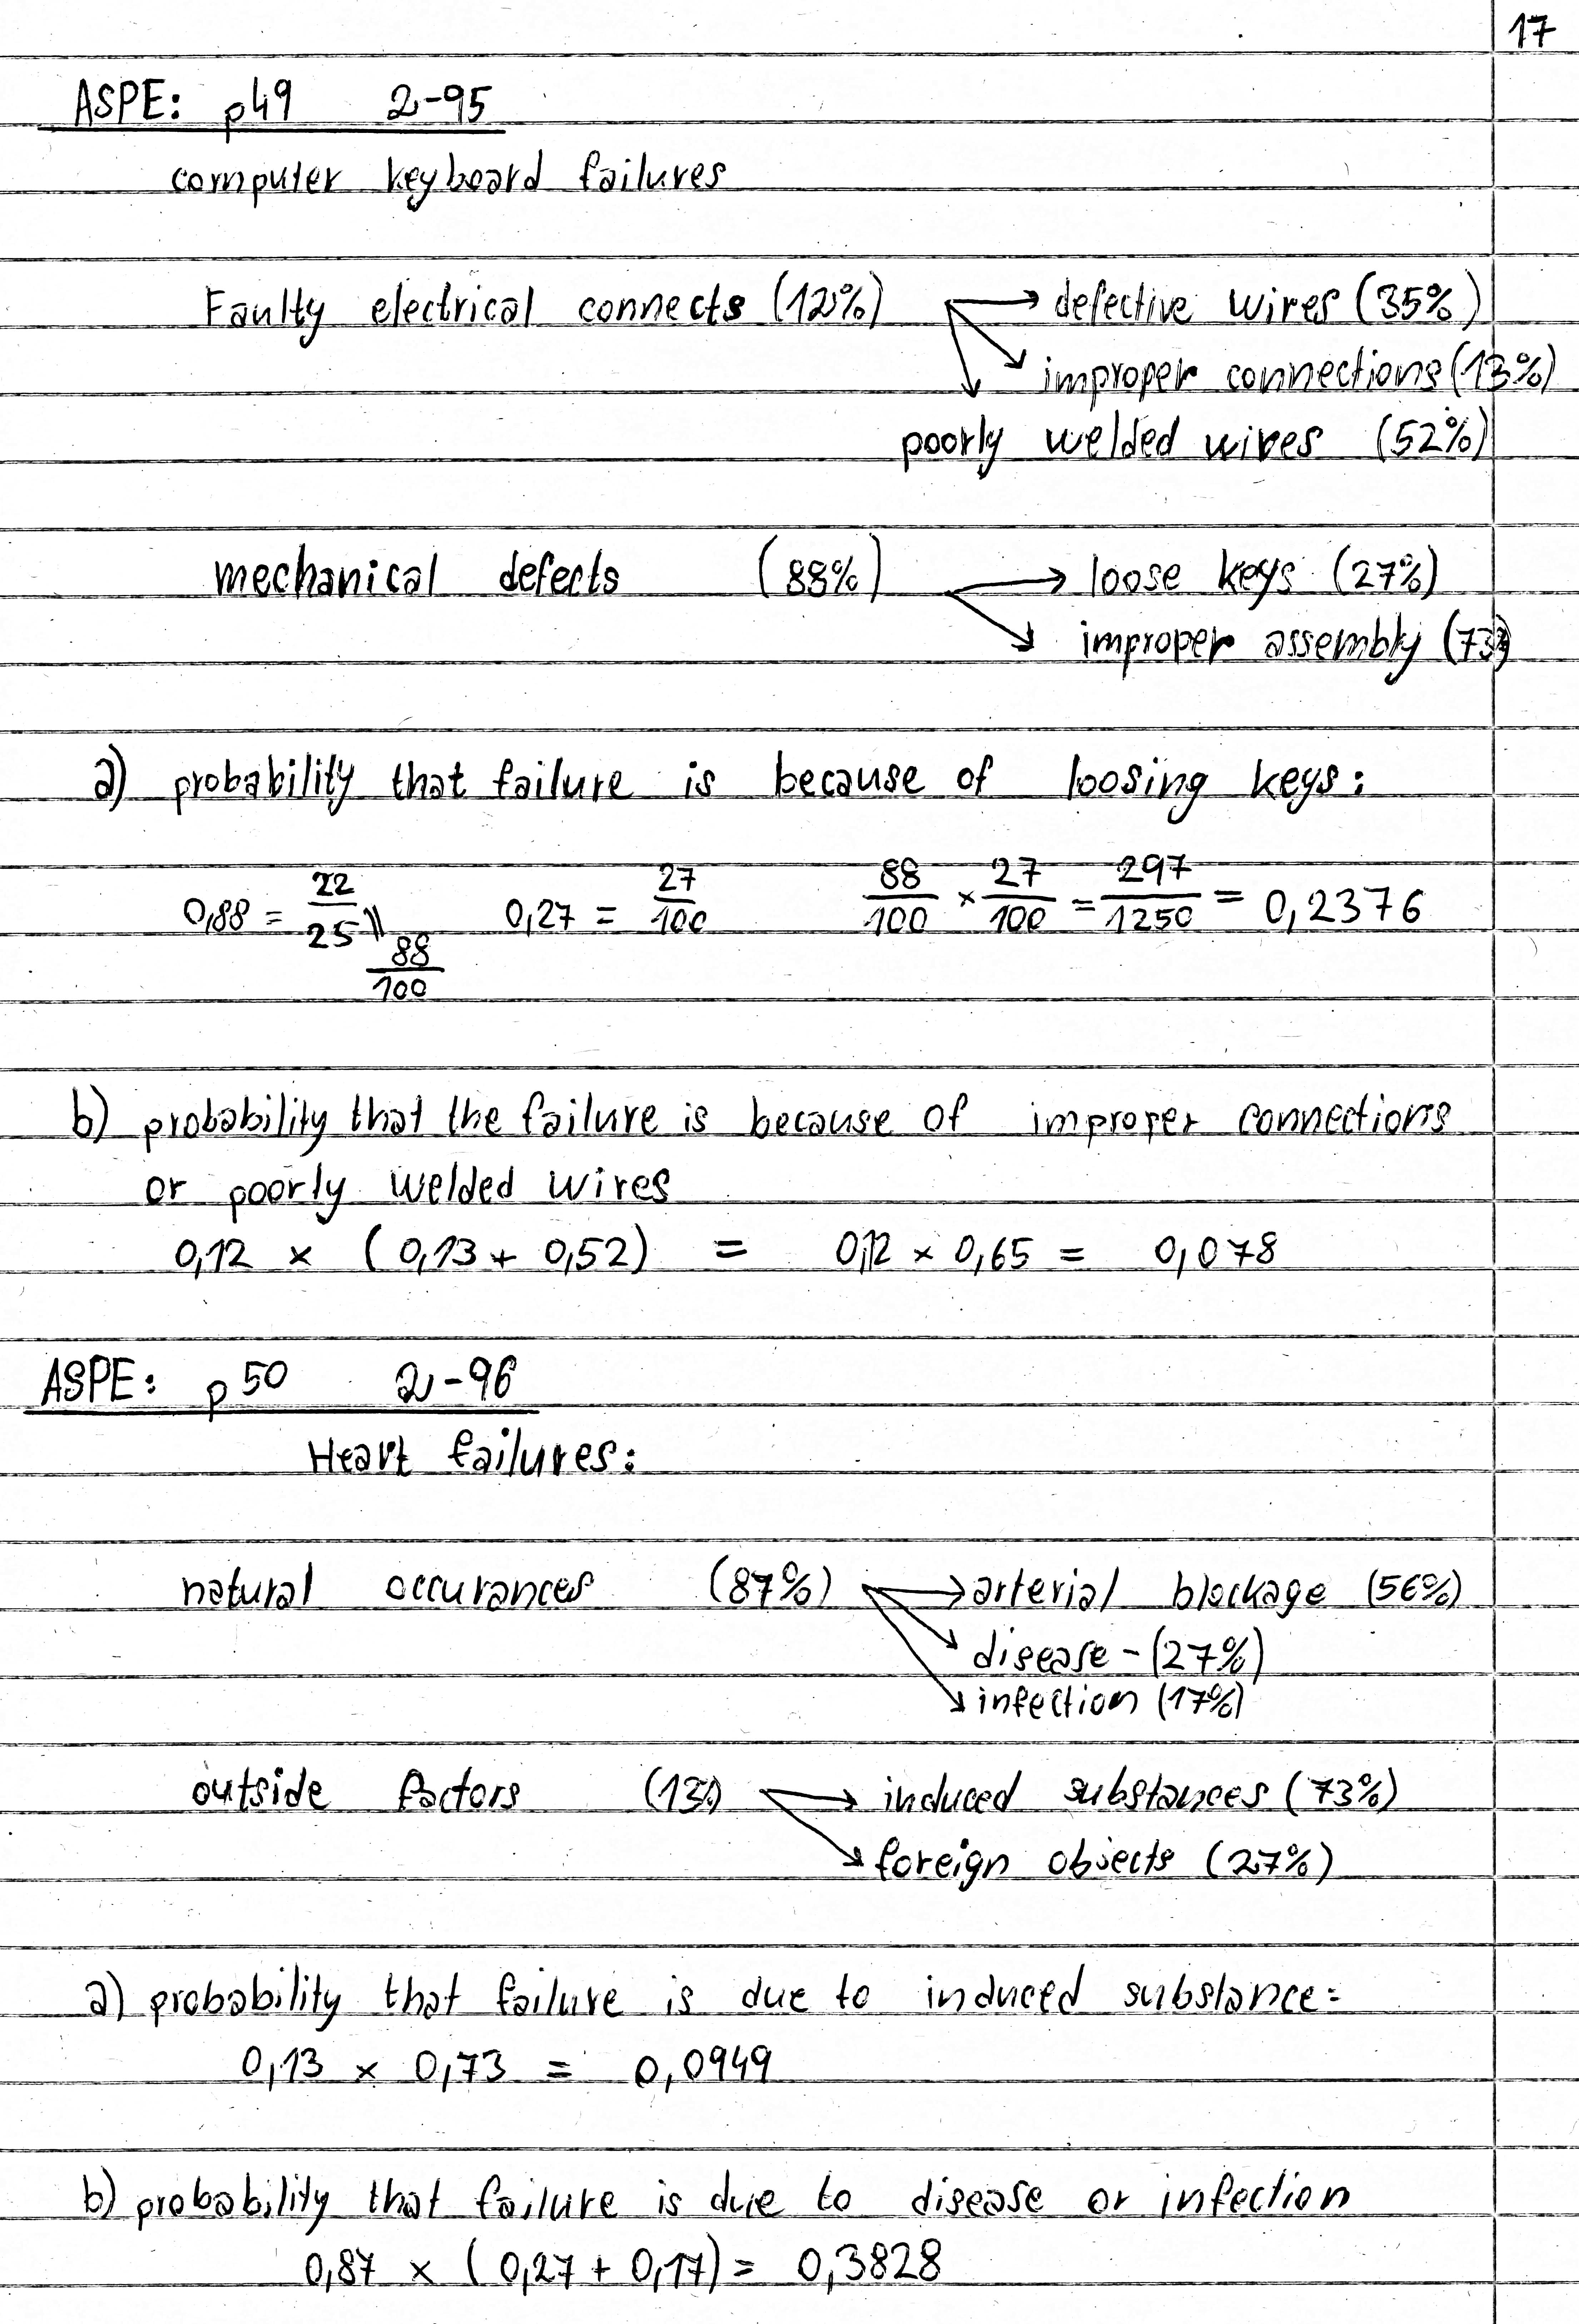 17
ASPE: p49 2-95
computer keyboard failures
Faulty electrical connects (12%) → defective wires (35%)
↘ improper connections (13%)
poorly welded wires (52%)
mechanical defects (88%) → loose keys (27%)
↘ improper assembly (73)
a) probability that failure is because of loosing keys:
0,88 = 22/25 = 88/100 0,27 = 27/100 88/100 × 27/100 = 297/1250 = 0,2376
b) probability that the failure is because of improper connections
or poorly welded wires
0,12 × (0,13 + 0,52) = 0,12 × 0,65 = 0,078
ASPE: p50 2-96
Heart failures:
natural occurances (87%) → arterial blockage (56%)
↘ disease - (27%)
↘ infection (17%)
outside factors (13%) → induced substances (73%)
↘ foreign objects (27%)
a) probability that failure is due to induced substance:
0,13 × 0,73 = 0,0949
b) probability that failure is due to disease or infection
0,87 × (0,27 + 0,17) = 0,3828